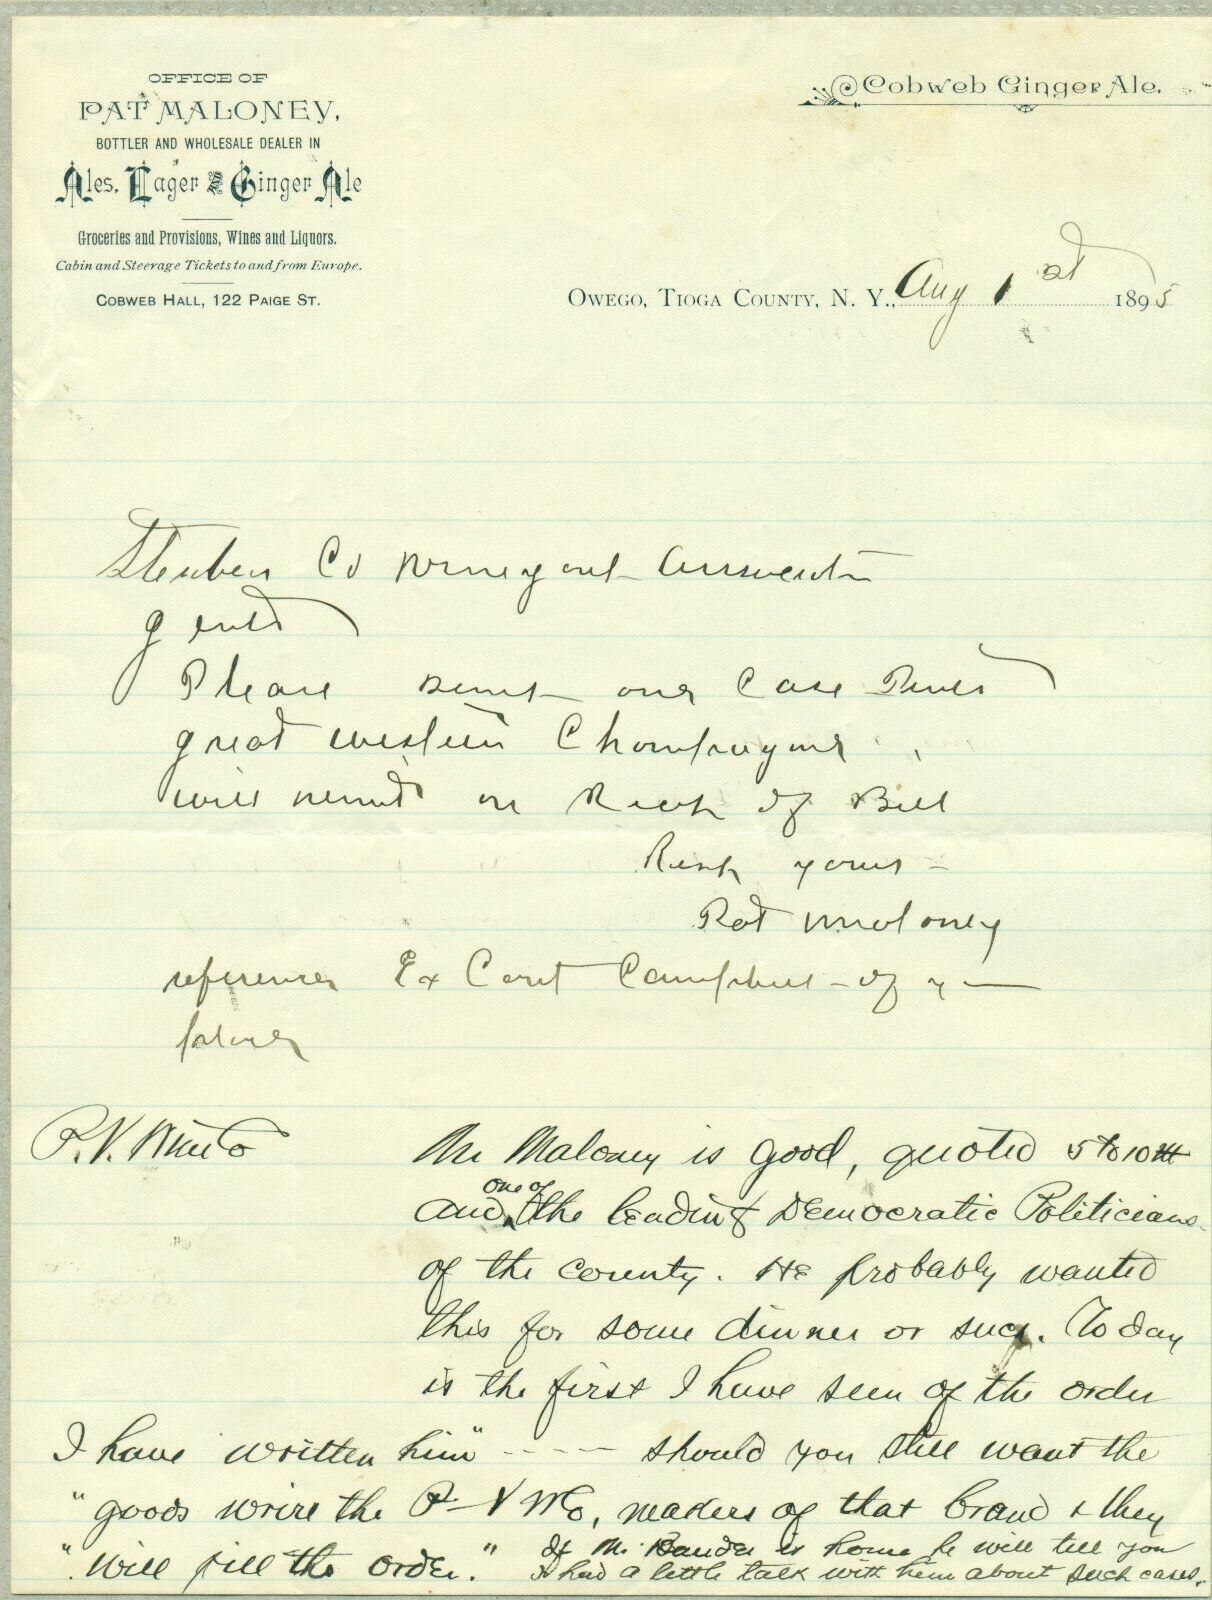 OFFICE OF
PAT MALONEY,
BOTTLER AND WHOLESALE DEALER IN
Ales, Lager and Ginger Ale
Groceries and Provisions, Wines and Liquors.
Cabin and Steerage Tickets to and from Europe.
COBWEB HALL, 122 PAIGE ST.
Cobweb Ginger Ale.
OWEGO, TIOGA COUNTY, N. Y., Aug 1st 1895
Steuben Co
gents
Please send one Case
great western
will remit on of Bill
yours
Pat Maloney
reference Ex
P. V. Wine Co
Mr Maloney is good, quoted 5 to 10 M
and one of the leading Democratic Politicians
of the county. He probably wanted
this for some dinner or such. Today
is the first I have seen of the order
I have written him" ---- should you still want the
"goods wrire the P V W Co, makers of that brand & they
"will fill the order." If Mr. is home he will tell you
I had a little talk with him about such cases.